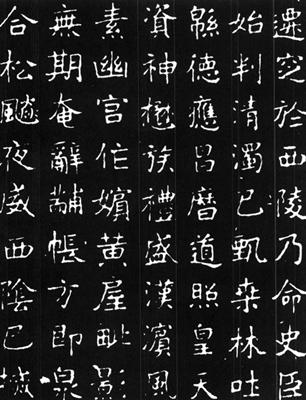 遷窆於西陵乃命史臣
始判清濁已甄桑林吐
緜德應昌曆道照皇天
資神樾族禮盛漢濱風
素幽宮作嬪黄屋毗影
無期奄辭黼帳方即泉
合松飈夜威西陰已摵